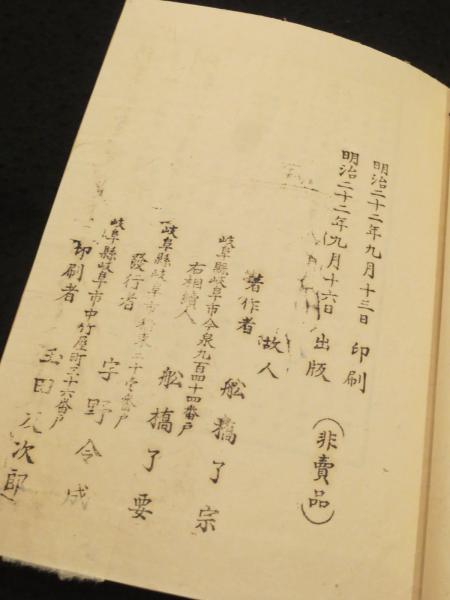 明治二十二年九月十三日 印刷
明治二十二年九月十六日 出版
(非賣品)
著作者 故人 舩橋了宗
岐阜縣岐阜市今泉九百四十四番戸
右相續人 舩橋了要
岐阜縣岐阜市
發行者 宇野令成
岐阜縣岐阜市中竹屋町三十六番戸
印刷者 玉田次郎